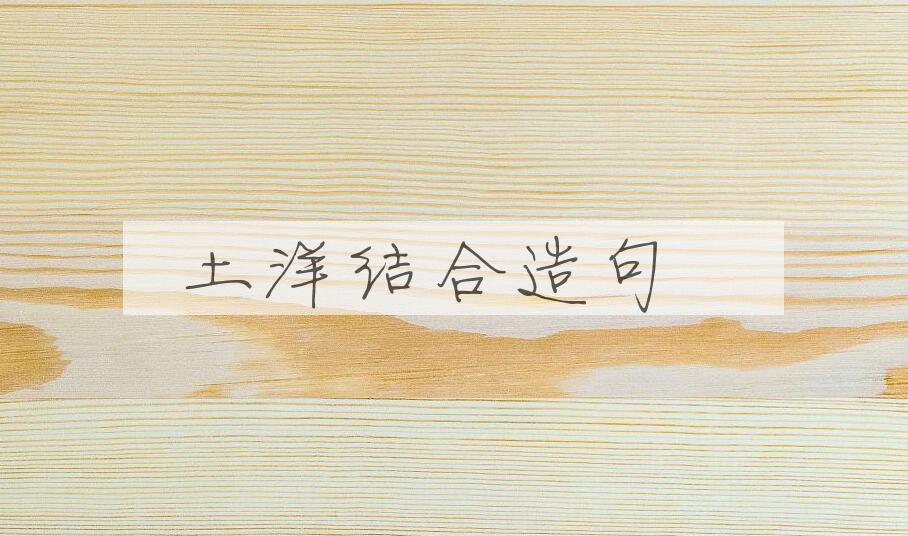 土洋结合造句